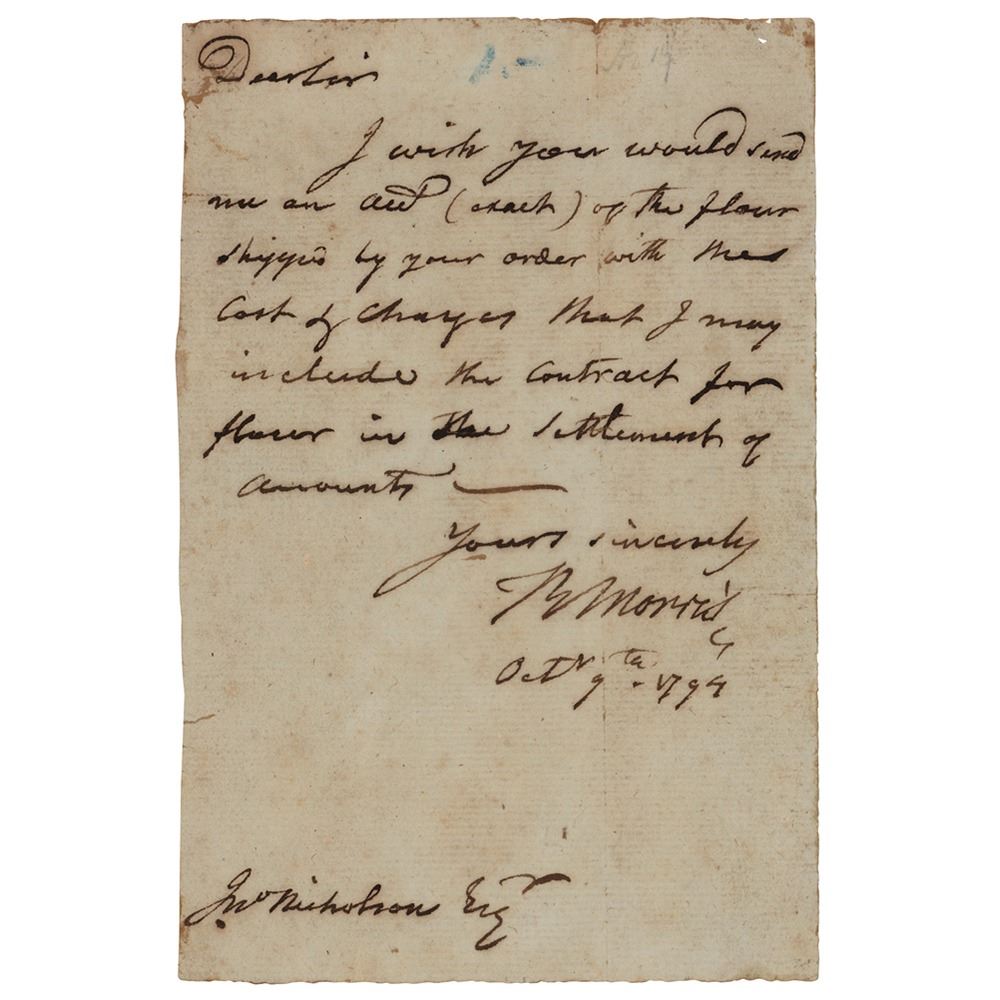 Dear Sir
1.-
I wish you would send
me an acct (exact) of the flour
shipped by your order with the
Cost & Charges that I may
include the Contract for
flour in the Settlement of
accounts —
Yours sincerely
R Morris
Octr 9th. 1794
Jno Nicholson Esqr